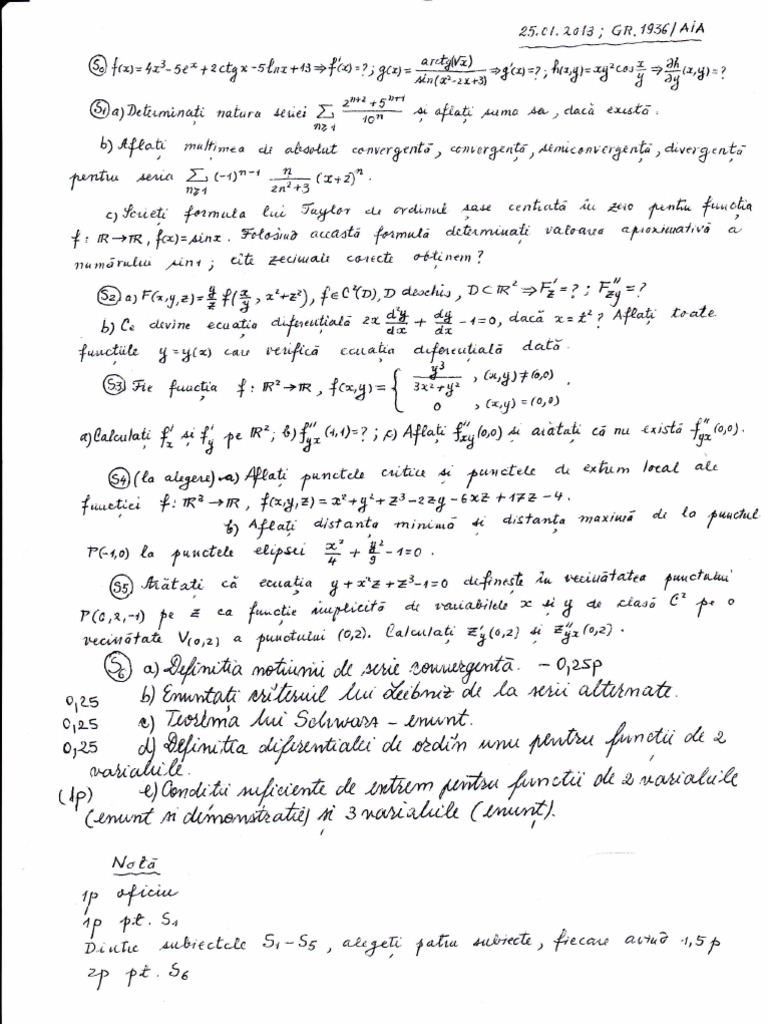 25.01.2013 ; GR. 1936/AIA
S0 f(x)=4x³-5eˣ+2ctgx-5lnx+13 ⇒ f'(x)=? ; g(x)= arctg(√x) / sin(x²-2x+3) ⇒ g'(x)=? ; h(x,y)=xy²cos x/y ⇒ ∂h/∂y (x,y)=?
S1 a) Determinați natura seriei Σ n≥1 (2ⁿ⁺²+5ⁿ⁺¹)/10ⁿ și aflați suma sa, dacă există.
b) Aflați mulțimea de absolut convergență, convergență, semiconvergență, divergență
pentru seria Σ n≥1 (-1)ⁿ⁻¹ n/(2n²+3) (x+2)ⁿ.
c) Scrieți formula lui Taylor de ordinul șase centrată în zero pentru funcția
f: ℝ→ℝ, f(x)=sinx. Folosind această formulă determinați valoarea aproximativă a
numărului sin1 ; cîte zecimale corecte obținem?
S2 a) F(x,y,z)= y/z f(x/y, x²+z²), f∈C²(D), D deschis, D⊂ℝ² ⇒ F'z=? ; F''zy=?
b) Ce devine ecuația diferențială 2x d²y/dx + dy/dx -1=0, dacă x=t² ? Aflați toate
funcțiile y=y(x) care verifică ecuația diferențială dată.
S3 Fie funcția f: ℝ²→ℝ, f(x,y)= { y³/(3x²+y²) , (x,y)≠(0,0) ; 0 , (x,y)=(0,0) .
a) Calculați f'x și f'y pe ℝ² ; b) f''yx(1,1)=? ; c) Aflați f''xy(0,0) și arătați că nu există f''yx(0,0).
S4 (la alegere) a) Aflați punctele critice și punctele de extrem local ale
funcției f: ℝ³→ℝ, f(x,y,z)=x²+y²+z³-2zy-6xz+17z-4.
b) Aflați distanța minimă și distanța maximă de la punctul
P(-1,0) la punctele elipsei x²/4 + y²/9 -1=0.
S5 Arătați că ecuația y+x²z+z³-1=0 definește în vecinătatea punctului
P(0,2,-1) pe z ca funcție implicită de variabilele x și y de clasă C² pe o
vecinătate V(0,2) a punctului (0,2). Calculați z'y(0,2) și z''yx(0,2).
S6 a) Definitia notiunii de serie convergentă. - 0,25p
0,25 b) Enuntați criteriul lui Leibniz de la serii alternate.
0,25 c) Teorema lui Schwarz - enunt.
0,25 d) Definitia diferentialei de ordin unu pentru functii de 2
variabile.
(1p) e) Conditii suficiente de extrem pentru functii de 2 variabile
(enunt si demonstratie) și 3 variabile (enunț).
Notă
1p oficiu
1p pt. S1
Dintre subiectele S1-S5, alegeți patru subiecte, fiecare având 1,5p
2p pt. S6